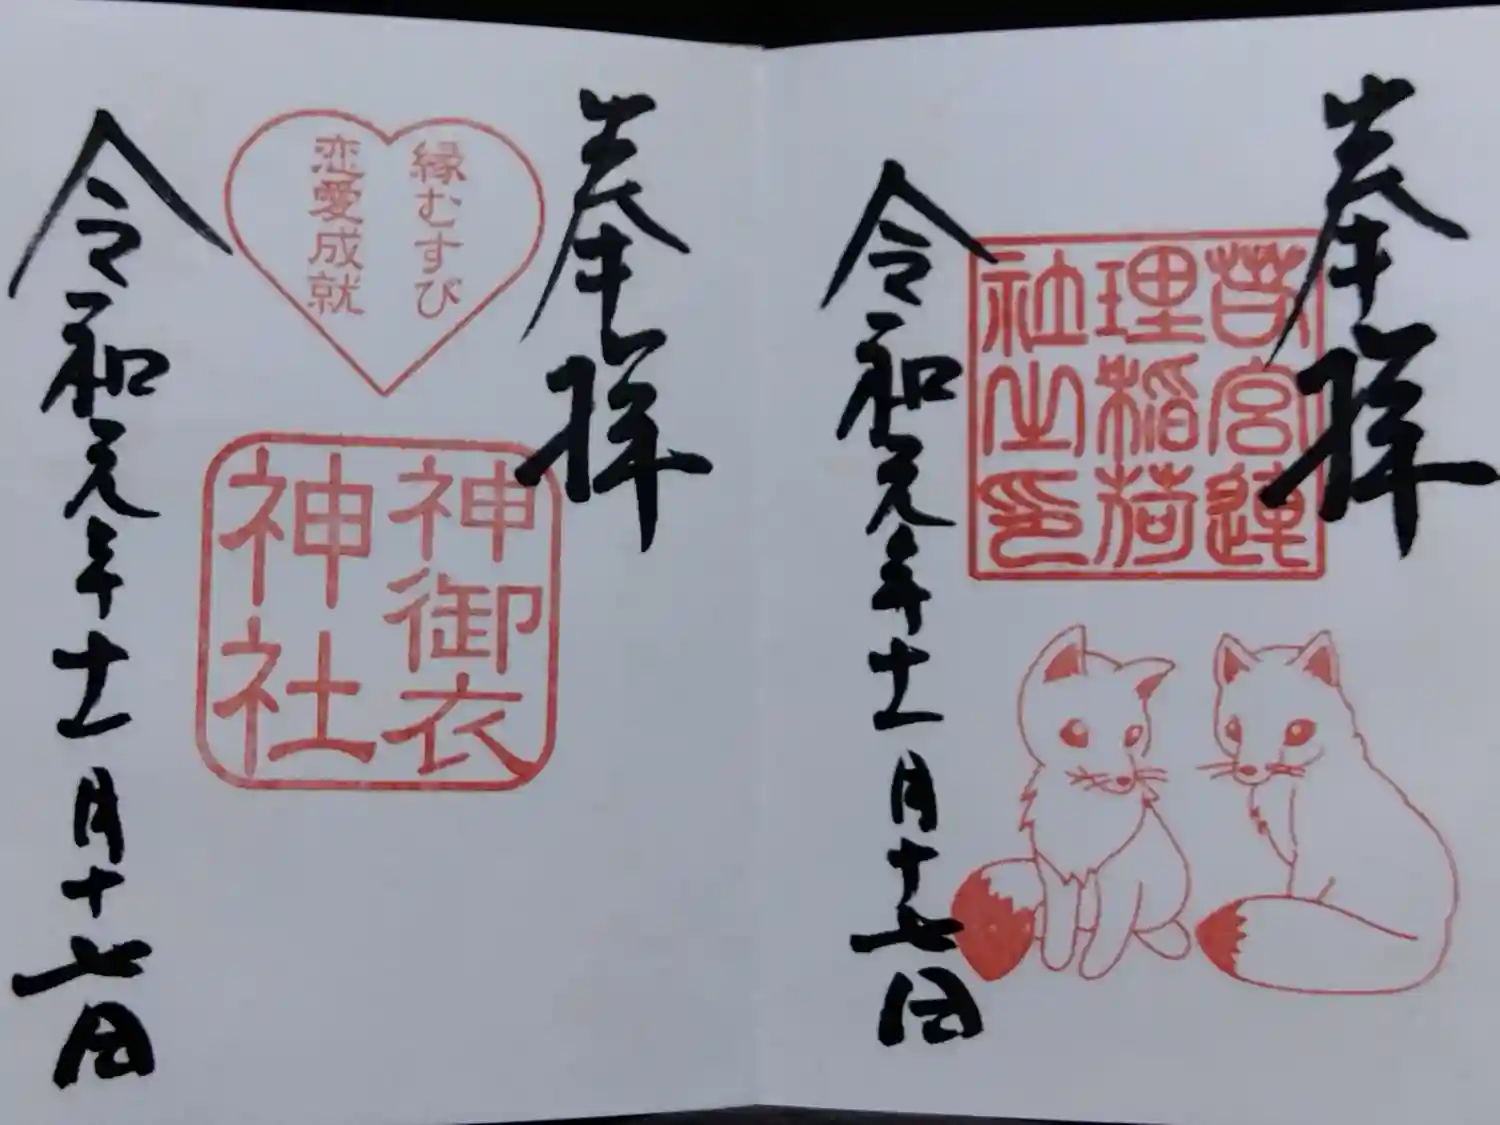 奉拝
若宮連
理稲荷
社之印
令和元年十一月十七日
奉拝
縁むすび
恋愛成就
神御衣
神社
令和元年十一月十七日